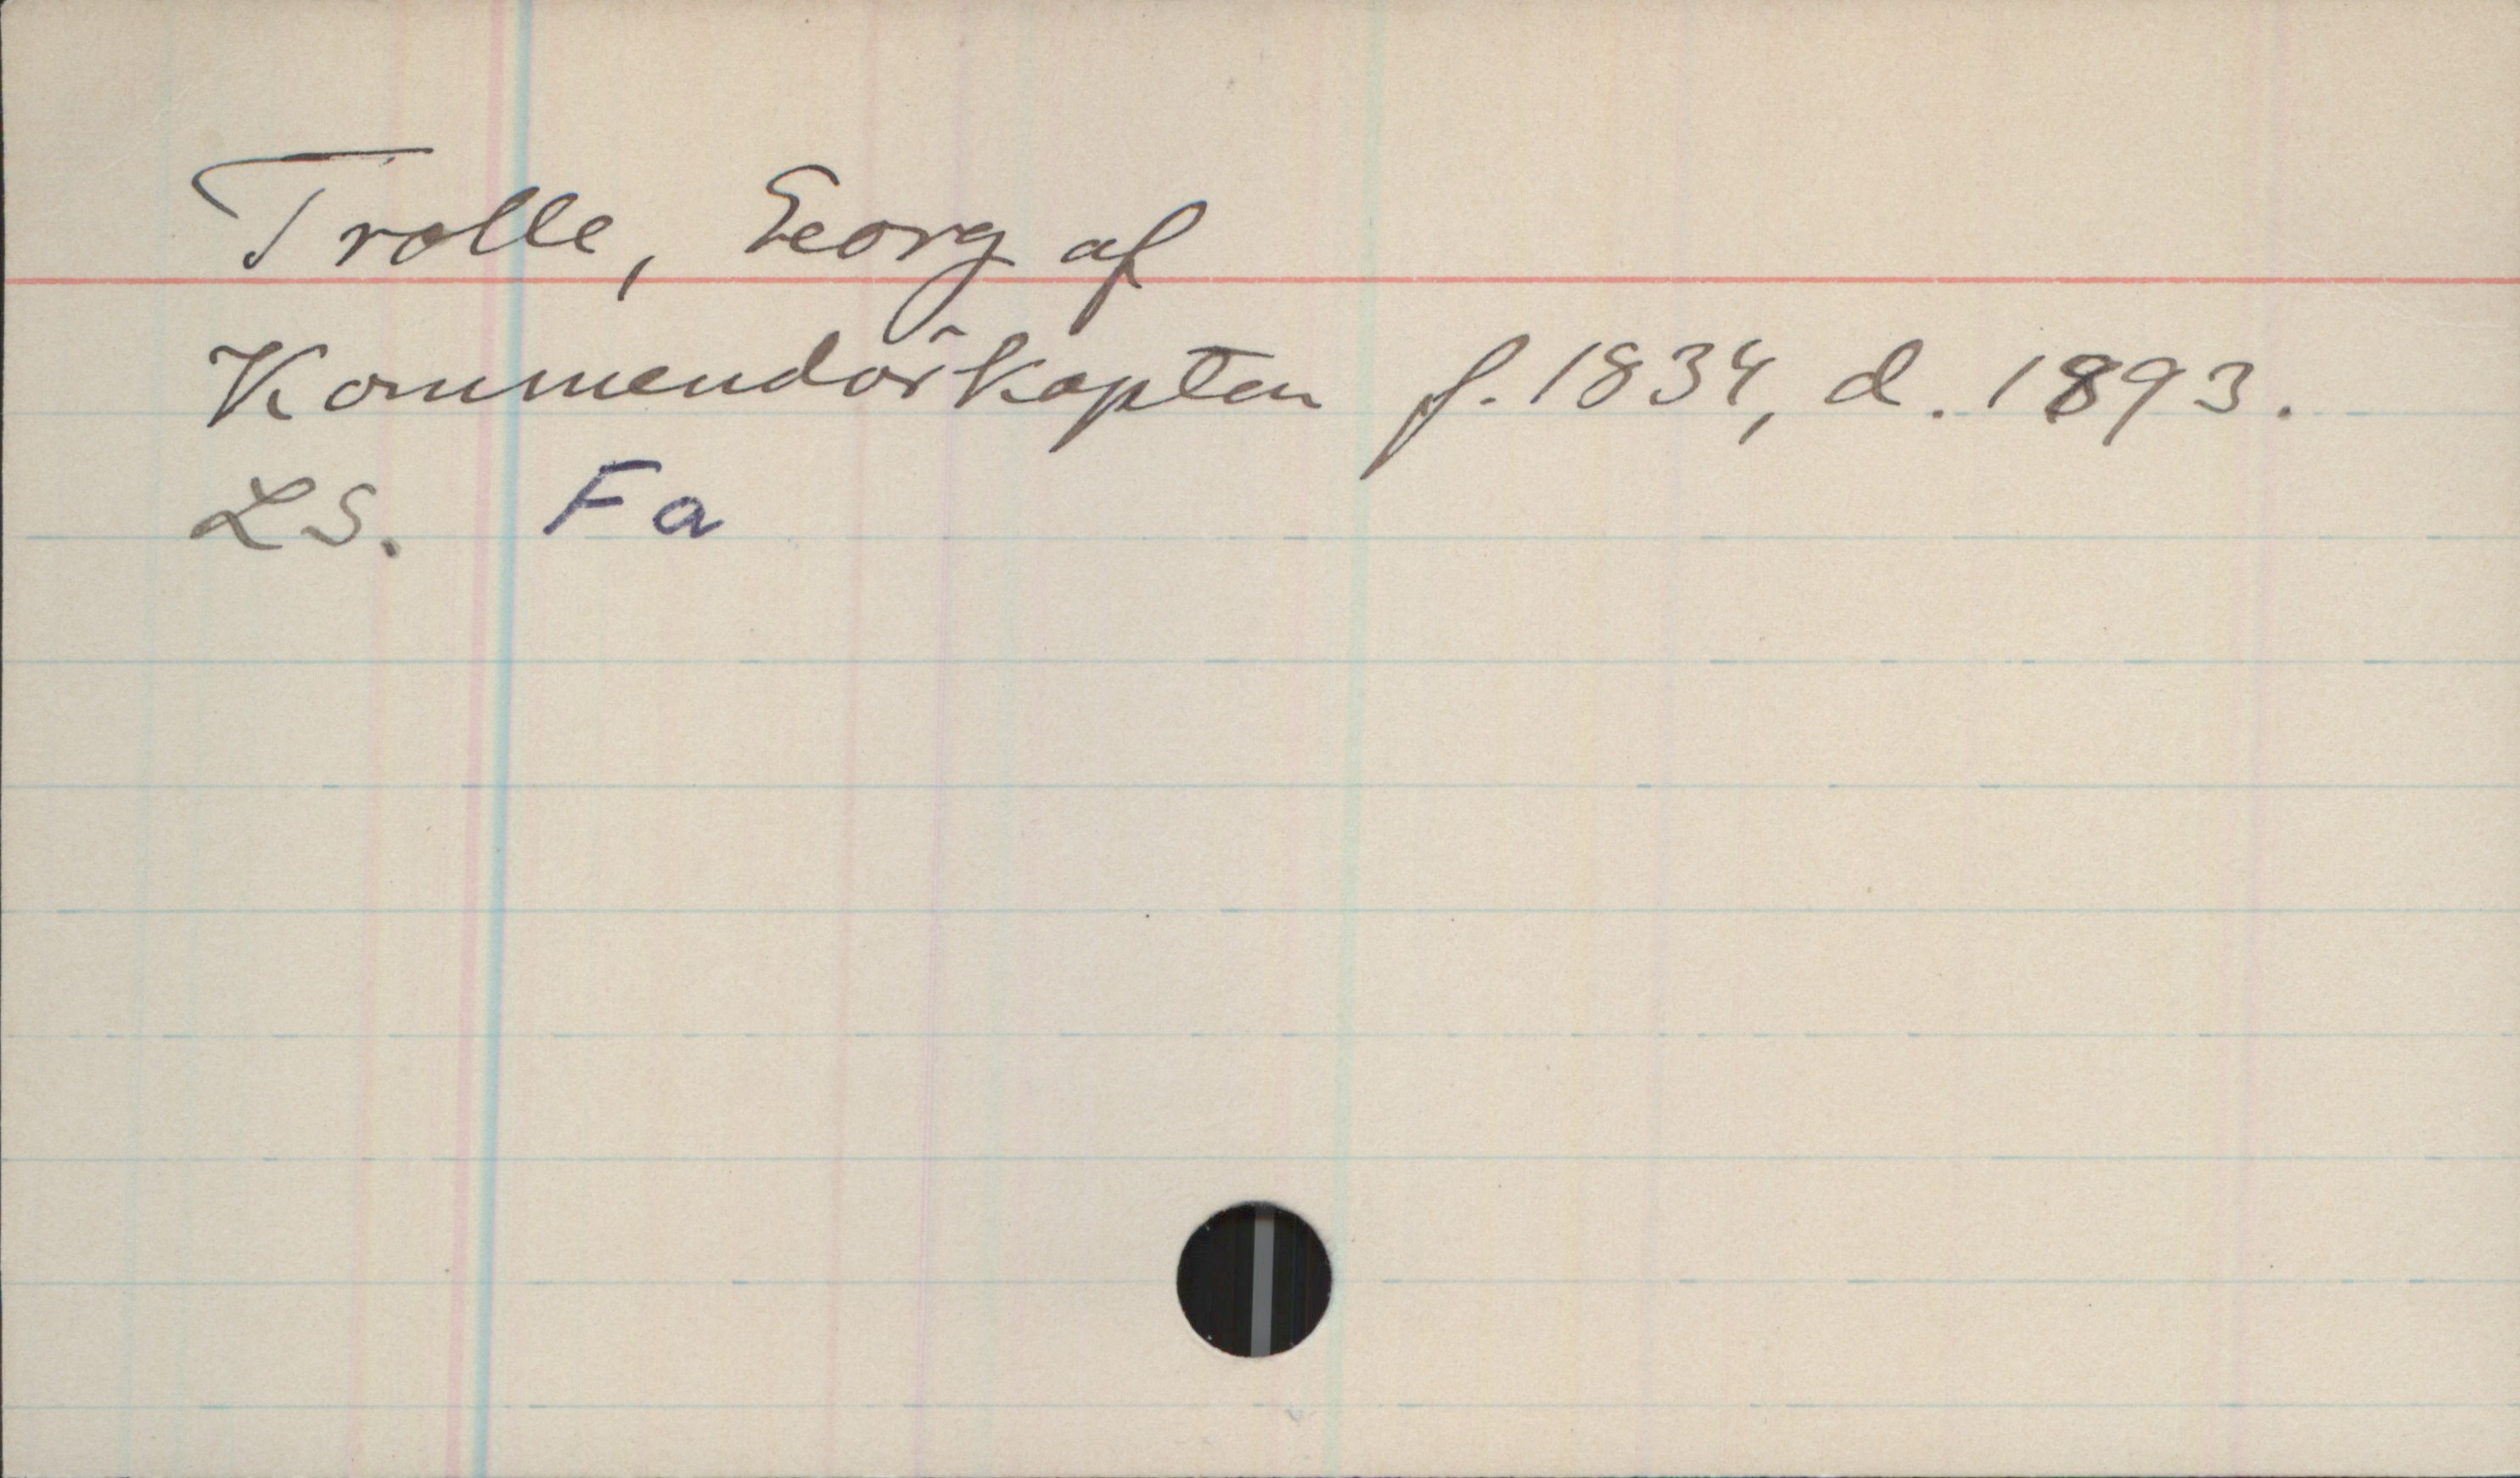 Trolle, Georg af
Kommendörkapten f. 1834, d. 1893.
LS. Fa